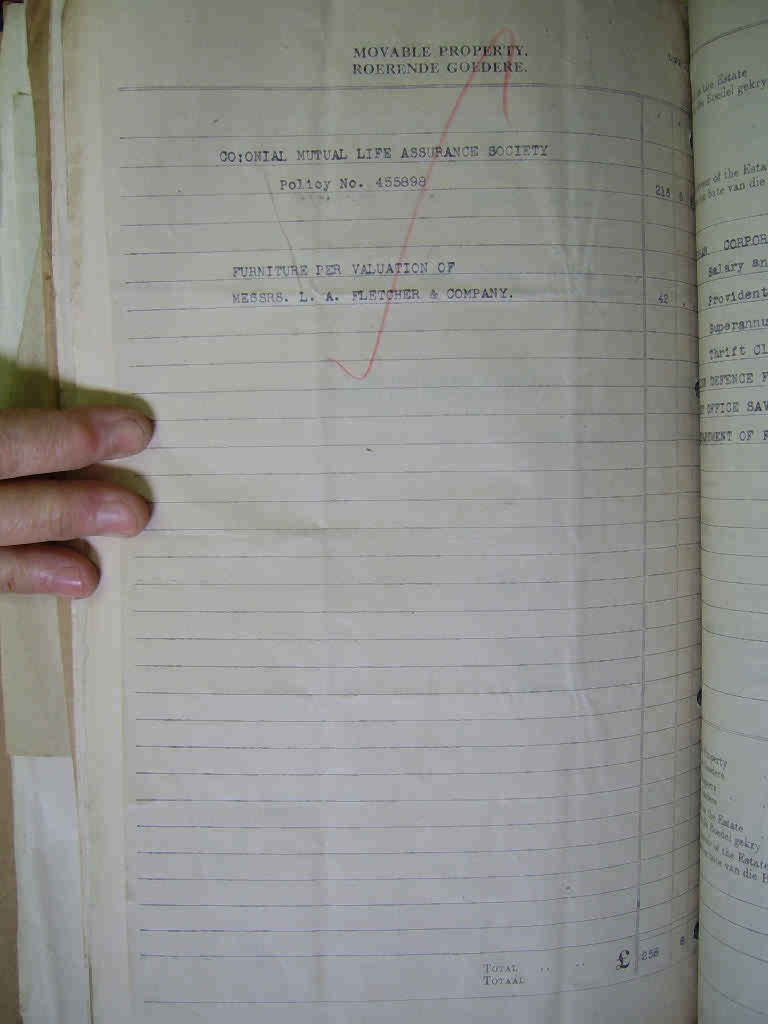 MOVABLE PROPERTY.
ROERENDE GOEDERE.
CO:ONIAL MUTUAL LIFE ASSURANCE SOCIETY
Policy No. 455898
FURNITURE PER VALUATION OF
MESSRS. L. A. FLETCHER & COMPANY.
42
TOTAL .. .. £ 8
TOTAAL
the Estate
Boedel gekry
of the
bate van die
CORPOR
Salary an
Provident
Superannu
Thrift Cl
DEFENCE F
OFFICE SAV
OF
the Estate
Boedel gekry
of the Estate
van die B